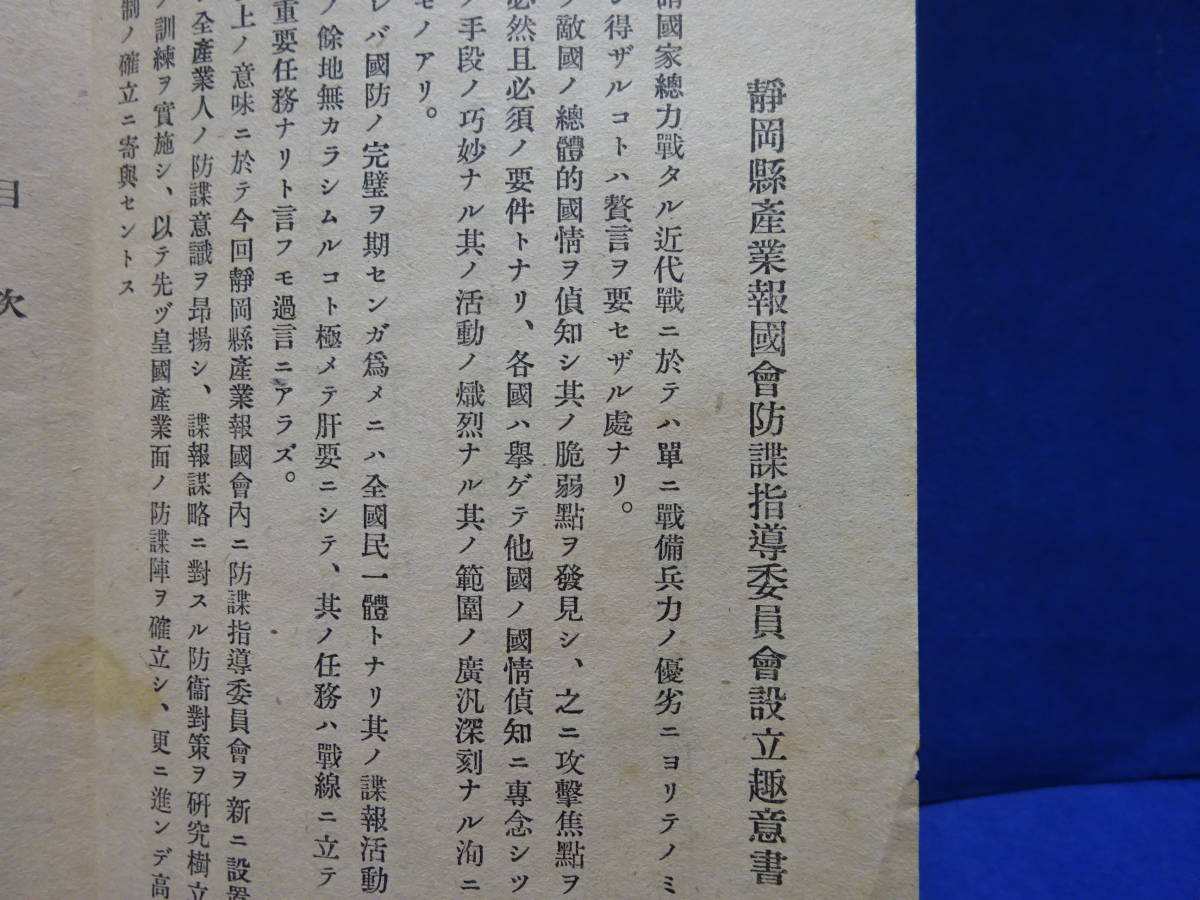 靜岡縣產業報國會防諜指導委員會設立趣意書
謂國家總力戰タル近代戰ニ於テハ單ニ戰備兵力ノ優劣ニヨリテノミ
得ザルコトハ贅言ヲ要セザル處ナリ。
敵國ノ總體的國情ヲ偵知シ其ノ脆弱點ヲ發見シ、之ニ攻擊焦點ヲ
必然且必須ノ要件トナリ、各國ハ擧ゲテ他國ノ國情偵知ニ專念シツ
ノ手段ノ巧妙ナル其ノ活動ノ熾烈ナル其ノ範圍ノ廣汎深刻ナル洵ニ
モノアリ。
レバ國防ノ完璧ヲ期センガ爲メニハ全國民一體トナリ其ノ諜報活動
ノ餘地無カラシムルコト極メテ肝要ニシテ、其ノ任務ハ戰線ニ立テ
重要任務ナリト言フモ過言ニアラズ。
上ノ意味ニ於テ今回靜岡縣產業報國會內ニ防諜指導委員會ヲ新ニ設置
全產業人ノ防諜意識ヲ昂揚シ、諜報謀略ニ對スル防衞對策ヲ硏究樹立
訓練ヲ實施シ、以テ先ヅ皇國產業面ノ防諜陣ヲ確立シ、更ニ進ンデ高
制ノ確立ニ寄與セントス
目次